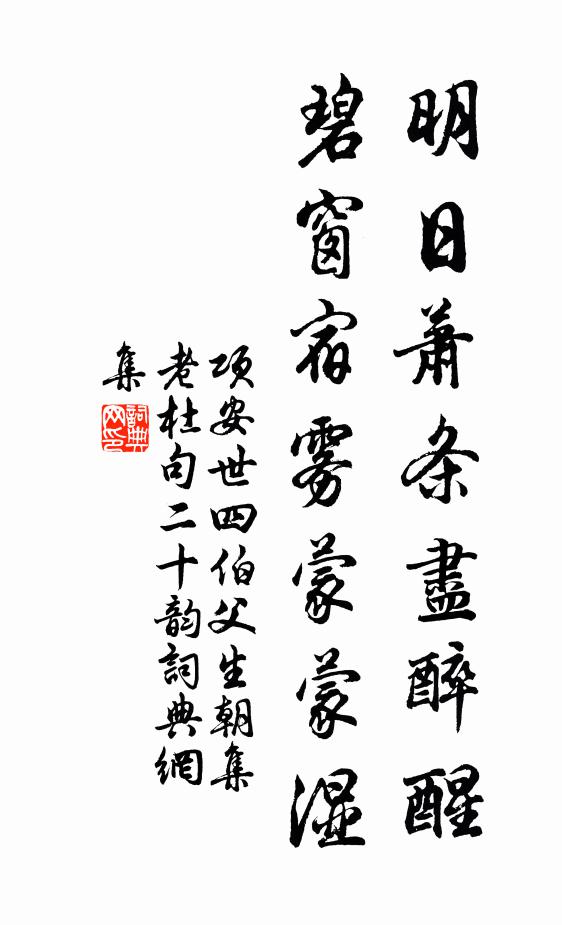 明日蕭条盡醉醒
碧窗宿雾蒙蒙湿
项安世四伯父生朝集
老杜句二十韵詞典網
集
詞典
网印